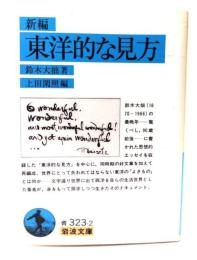 新編
東洋的な見方
鈴木大拙著
上田閑照編
O wonderful,
wonderful,
and most wonderful wonderful!
and yet again wonderful
Daisetz
鈴木大拙(18
70-1966)の
最晩年──驚
くべし、90歳
前後──に書
かれた思想的
エッセイを収
録した『東洋的な見方』を中心に、同時期の好文章を加えて
再編成。世界にとって失われてはならない東洋の「よきもの」
とは何か──文字通り世界に出て西洋を自らの生活世界とし
た著者が、身をもって探求しつづけたそのドキュメント。
青 323-2
岩波文庫